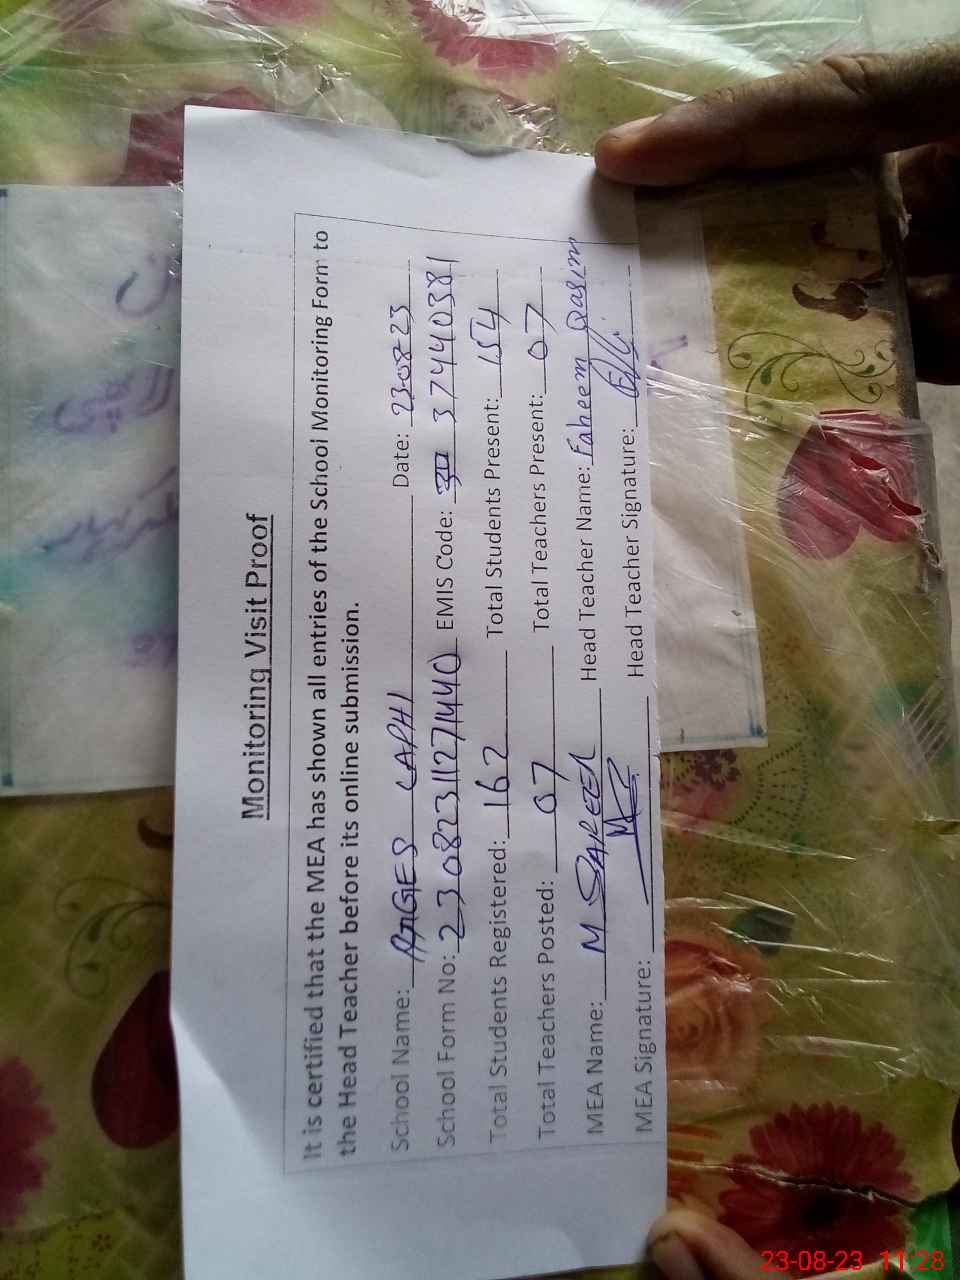 Monitoring Visit Proof
It is certified that the MEA has shown all entries of the School Monitoring Form to
the Head Teacher before its online submission.
School Name: Date: 230823
School Form No: 230823112711440 EMIS Code: 37440381
Total Students Registered: 162 Total Students Present: 154
Total Teachers Posted: 07 Total Teachers Present: 07
MEA Name: M Head Teacher Name: Faheem Qasim
MEA Signature: Head Teacher Signature:
23-08-23 11:28